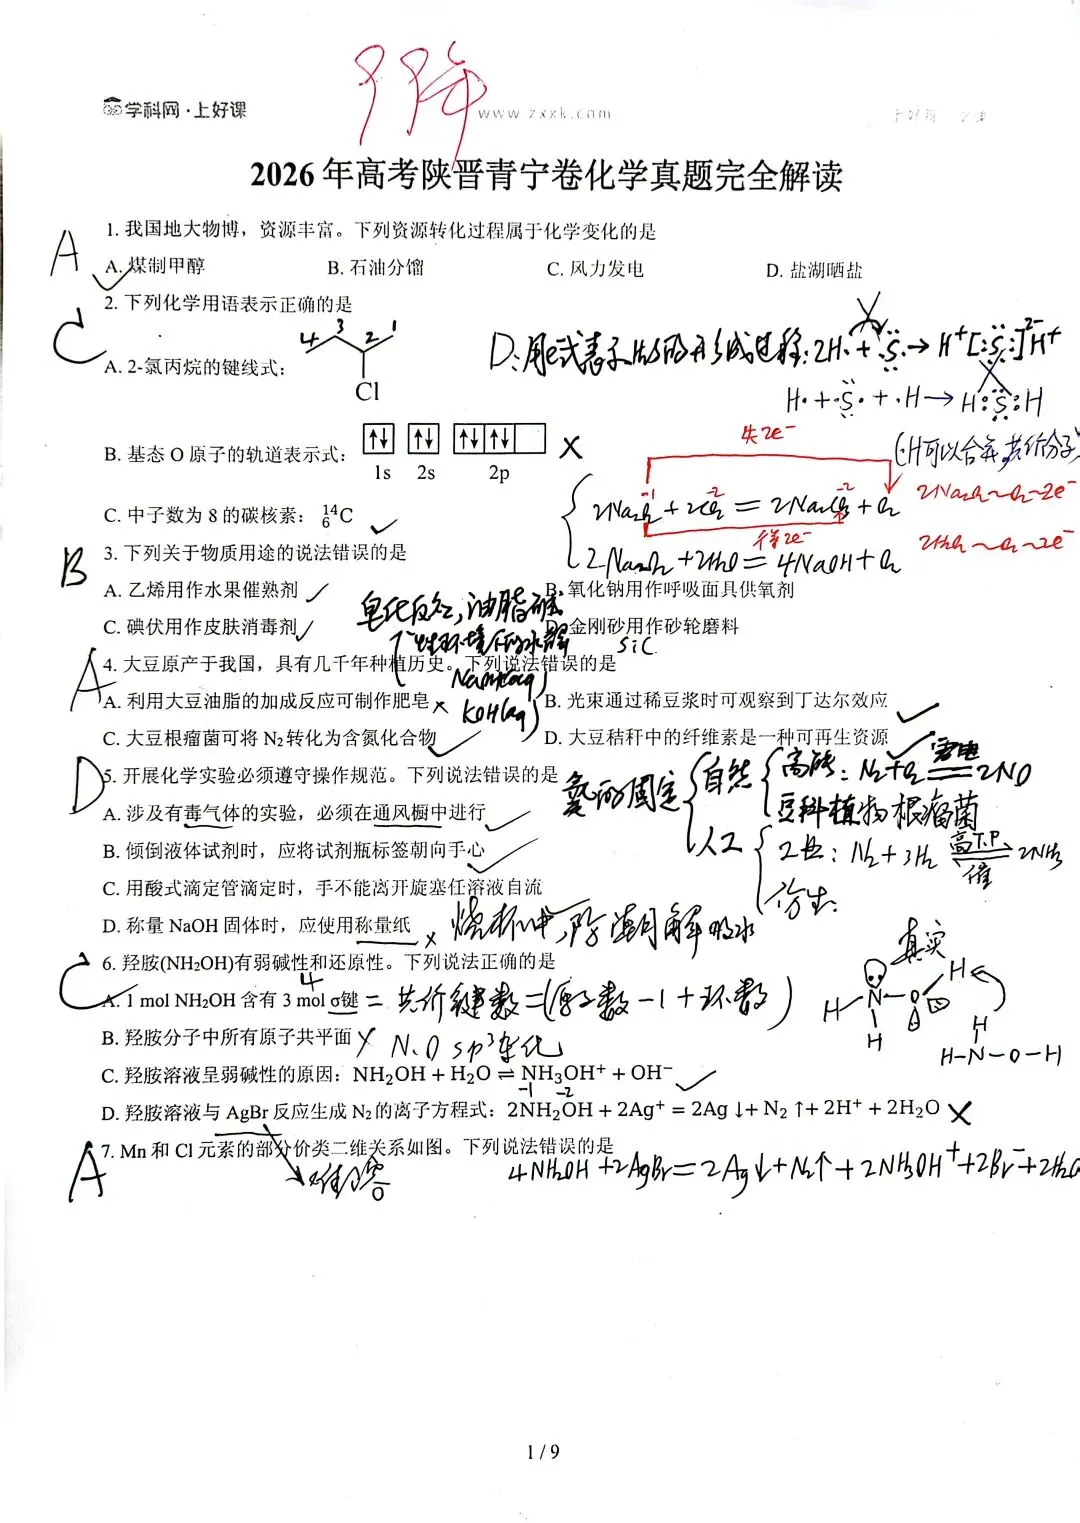 学科网·上好课
www.zxxk.com
2026年高考陕晋青宁卷化学真题完全解读
A
1. 我国地大物博，资源丰富。下列资源转化过程属于化学变化的是
A. 煤制甲醇 B. 石油分馏 C. 风力发电 D. 盐湖晒盐
C
2. 下列化学用语表示正确的是
4 3 2 1
A. 2-氯丙烷的键线式：
Cl
D：用e式表示H₂S的形成过程：2H· + ·S· → H⁺[:S:]²⁻H⁺
H· + ·S· + ·H → H:S:H
B. 基态 O 原子的轨道表示式：
1s 2s 2p
失2e⁻
2Na₂O₂ + 2CO₂ = 2Na₂CO₃ + O₂
得2e⁻
2Na₂O₂ + 2H₂O = 4NaOH + O₂
2Na₂O₂～O₂～2e⁻
2H₂O～O₂～2e⁻
C. 中子数为 8 的碳核素：¹⁴₆C
B
3. 下列关于物质用途的说法错误的是
A. 乙烯用作水果催熟剂 B. 氧化钠用作呼吸面具供氧剂
C. 碘伏用作皮肤消毒剂 D. 金刚砂用作砂轮磨料
SiC
皂化反应，油脂碱
性环境下的水解
NaOH(aq)
KOH(aq)
A
4. 大豆原产于我国，具有几千年种植历史。下列说法错误的是
A. 利用大豆油脂的加成反应可制作肥皂 B. 光束通过稀豆浆时可观察到丁达尔效应
C. 大豆根瘤菌可将 N₂ 转化为含氮化合物 D. 大豆秸秆中的纤维素是一种可再生资源
D
5. 开展化学实验必须遵守操作规范。下列说法错误的是
A. 涉及有毒气体的实验，必须在通风橱中进行
B. 倾倒液体试剂时，应将试剂瓶标签朝向手心
C. 用酸式滴定管滴定时，手不能离开旋塞任溶液自流
D. 称量 NaOH 固体时，应使用称量纸
烧杯中，防潮解吸水
氮的固定
自然
高能：N₂+O₂ 雷电 2NO
豆科植物根瘤菌
人工
工业：N₂+3H₂ 高T.P 催 2NH₃
仿生：
C
6. 羟胺(NH₂OH)有弱碱性和还原性。下列说法正确的是
A. 1 mol NH₂OH 含有 3 mol σ键
4
= 共价键数 = (原子数 - 1 + 环数)
B. 羟胺分子中所有原子共平面
N、O sp³杂化
真实
H N O H
H
H
H-N-O-H
C. 羟胺溶液呈弱碱性的原因：NH₂OH + H₂O ⇌ NH₃OH⁺ + OH⁻
-1 -2
D. 羟胺溶液与 AgBr 反应生成 N₂ 的离子方程式：2NH₂OH + 2Ag⁺ = 2Ag↓ + N₂↑ + 2H⁺ + 2H₂O
A
7. Mn 和 Cl 元素的部分价类二维关系如图。下列说法错误的是
难溶
4NH₂OH + 2AgBr = 2Ag↓ + N₂↑ + 2NH₃OH⁺ + 2Br⁻ + 2H₂O
1 / 9